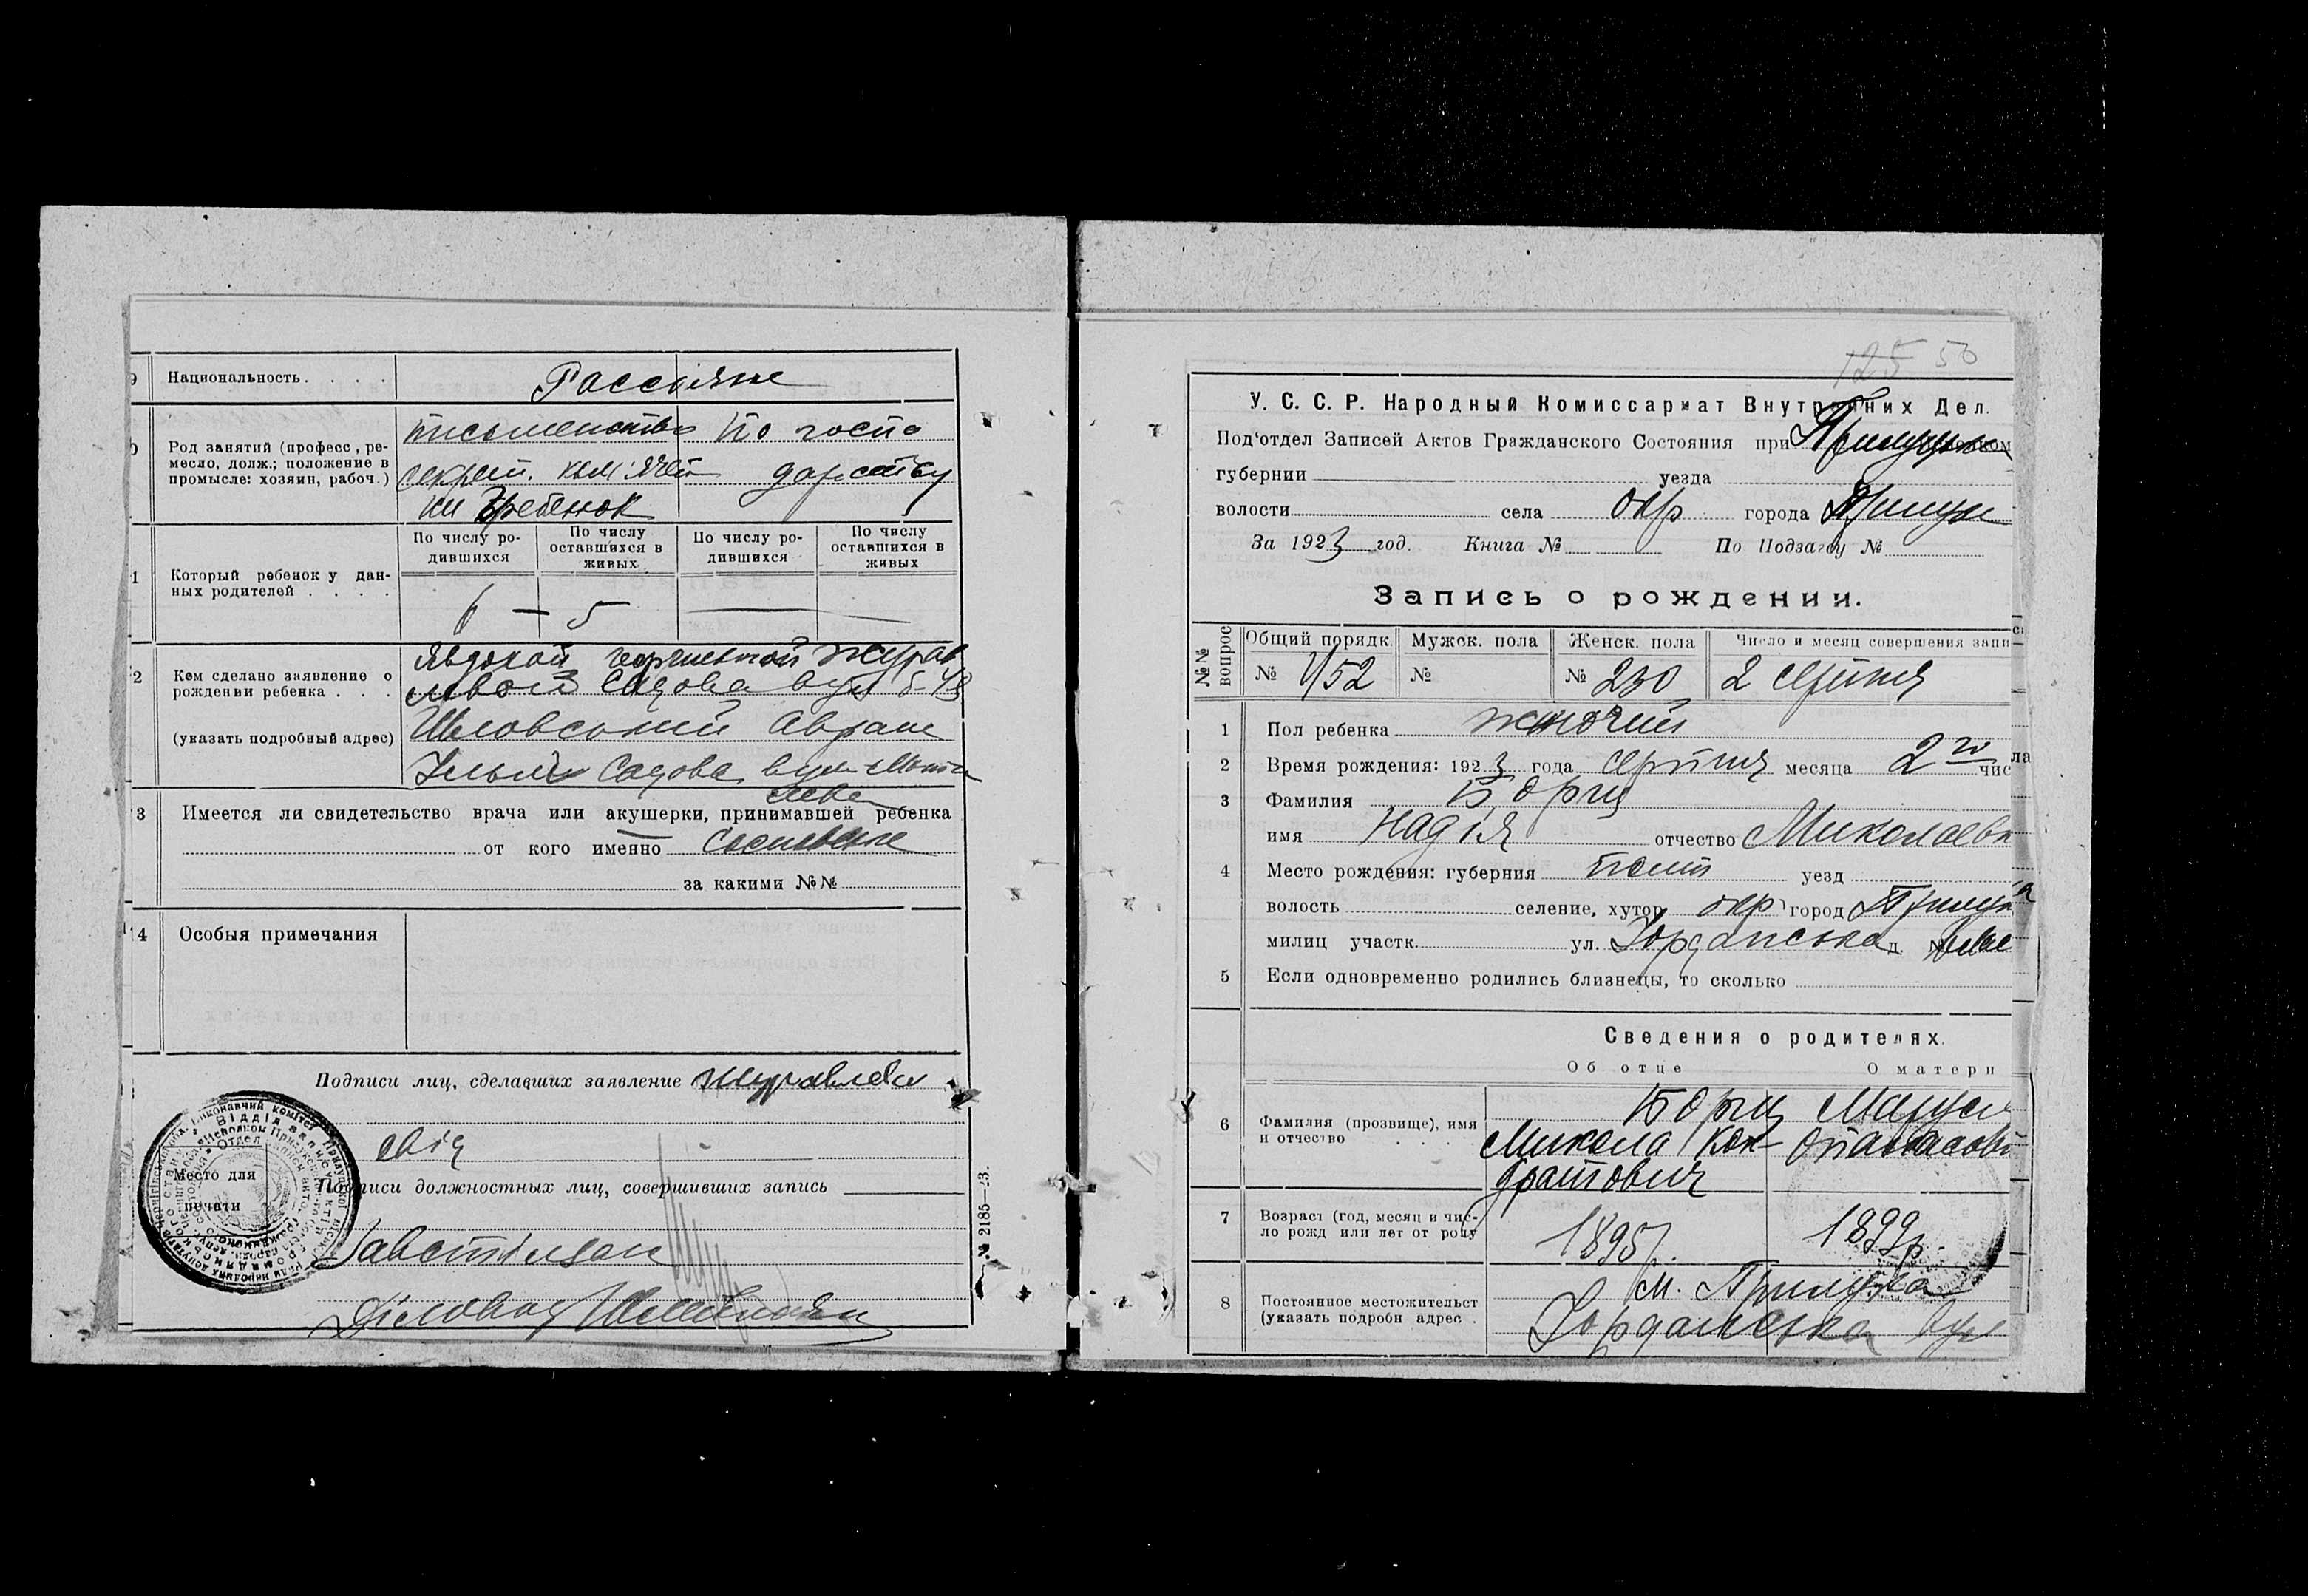 Национальность. . . . Россіяне
Род занятий (професс, ре-
месло, долж.; положение в
промысле: хозяин, рабоч.)
письменство По госпо
секрет. ком'ячей дарству
ки Гребенок
Который ребенок у дан-
ных родителей . . . .
По числу ро-
дившихся
По числу
оставшихся в
живых
По числу ро-
дившихся
По числу
оставшихся в
живых
6 — 5
Кем сделано заявление о
рождении ребенка . . .
(указать подробный адрес)
Явдокой Журав
левой Садова вул
Авраам
Садова вул
3 Имеется ли свидетельство врача или акушерки, принимавшей ребенка
от кого именно
за какими №№
4 Особыя примечания
Подписи лиц, сделавших заявление Журавлева
Место для
печати
Подписи должностных лиц, совершивших запись
Завстолом
Діловод
№ 2185—23.
125 50
У. С. С. Р. Народный Комиссариат Внутренних Дел.
Под'отдел Записей Актов Гражданского Состояния при Прилуцком
губернии уезда
волости села окр города Прилуки
За 1923 год. Книга № По Подзагсу №
Запись о рождении.
№№
вопрос
Общий порядк. Мужск. пола Женск. пола Число и месяц совершения запи
№ 452 № № 230 2 серпня
1 Пол ребенка жіночий
2 Время рождения: 1923 года серпня месяца 2го чис
ла
3 Фамилия Борщ
имя Надія отчество Миколаевн
4 Место рождения: губерния Полт уезд
волость селение, хутор окр город Прилука
милиц участк. ул. Іорданська д. №
5 Если одновременно родились близнецы, то сколько
Сведения о родителях.
Об отце О матери
6 Фамилия (прозвище), имя
и отчество . . . .
Борщ Маруся
Микола Кон- Опанасовн
дратович
7 Возраст (год, месяц и чис-
ло рожд или лет от роду
1895р. 1899р.
8 Постоянное местожительст
(указать подробн адрес .
м. Прилука
Іорданська вул